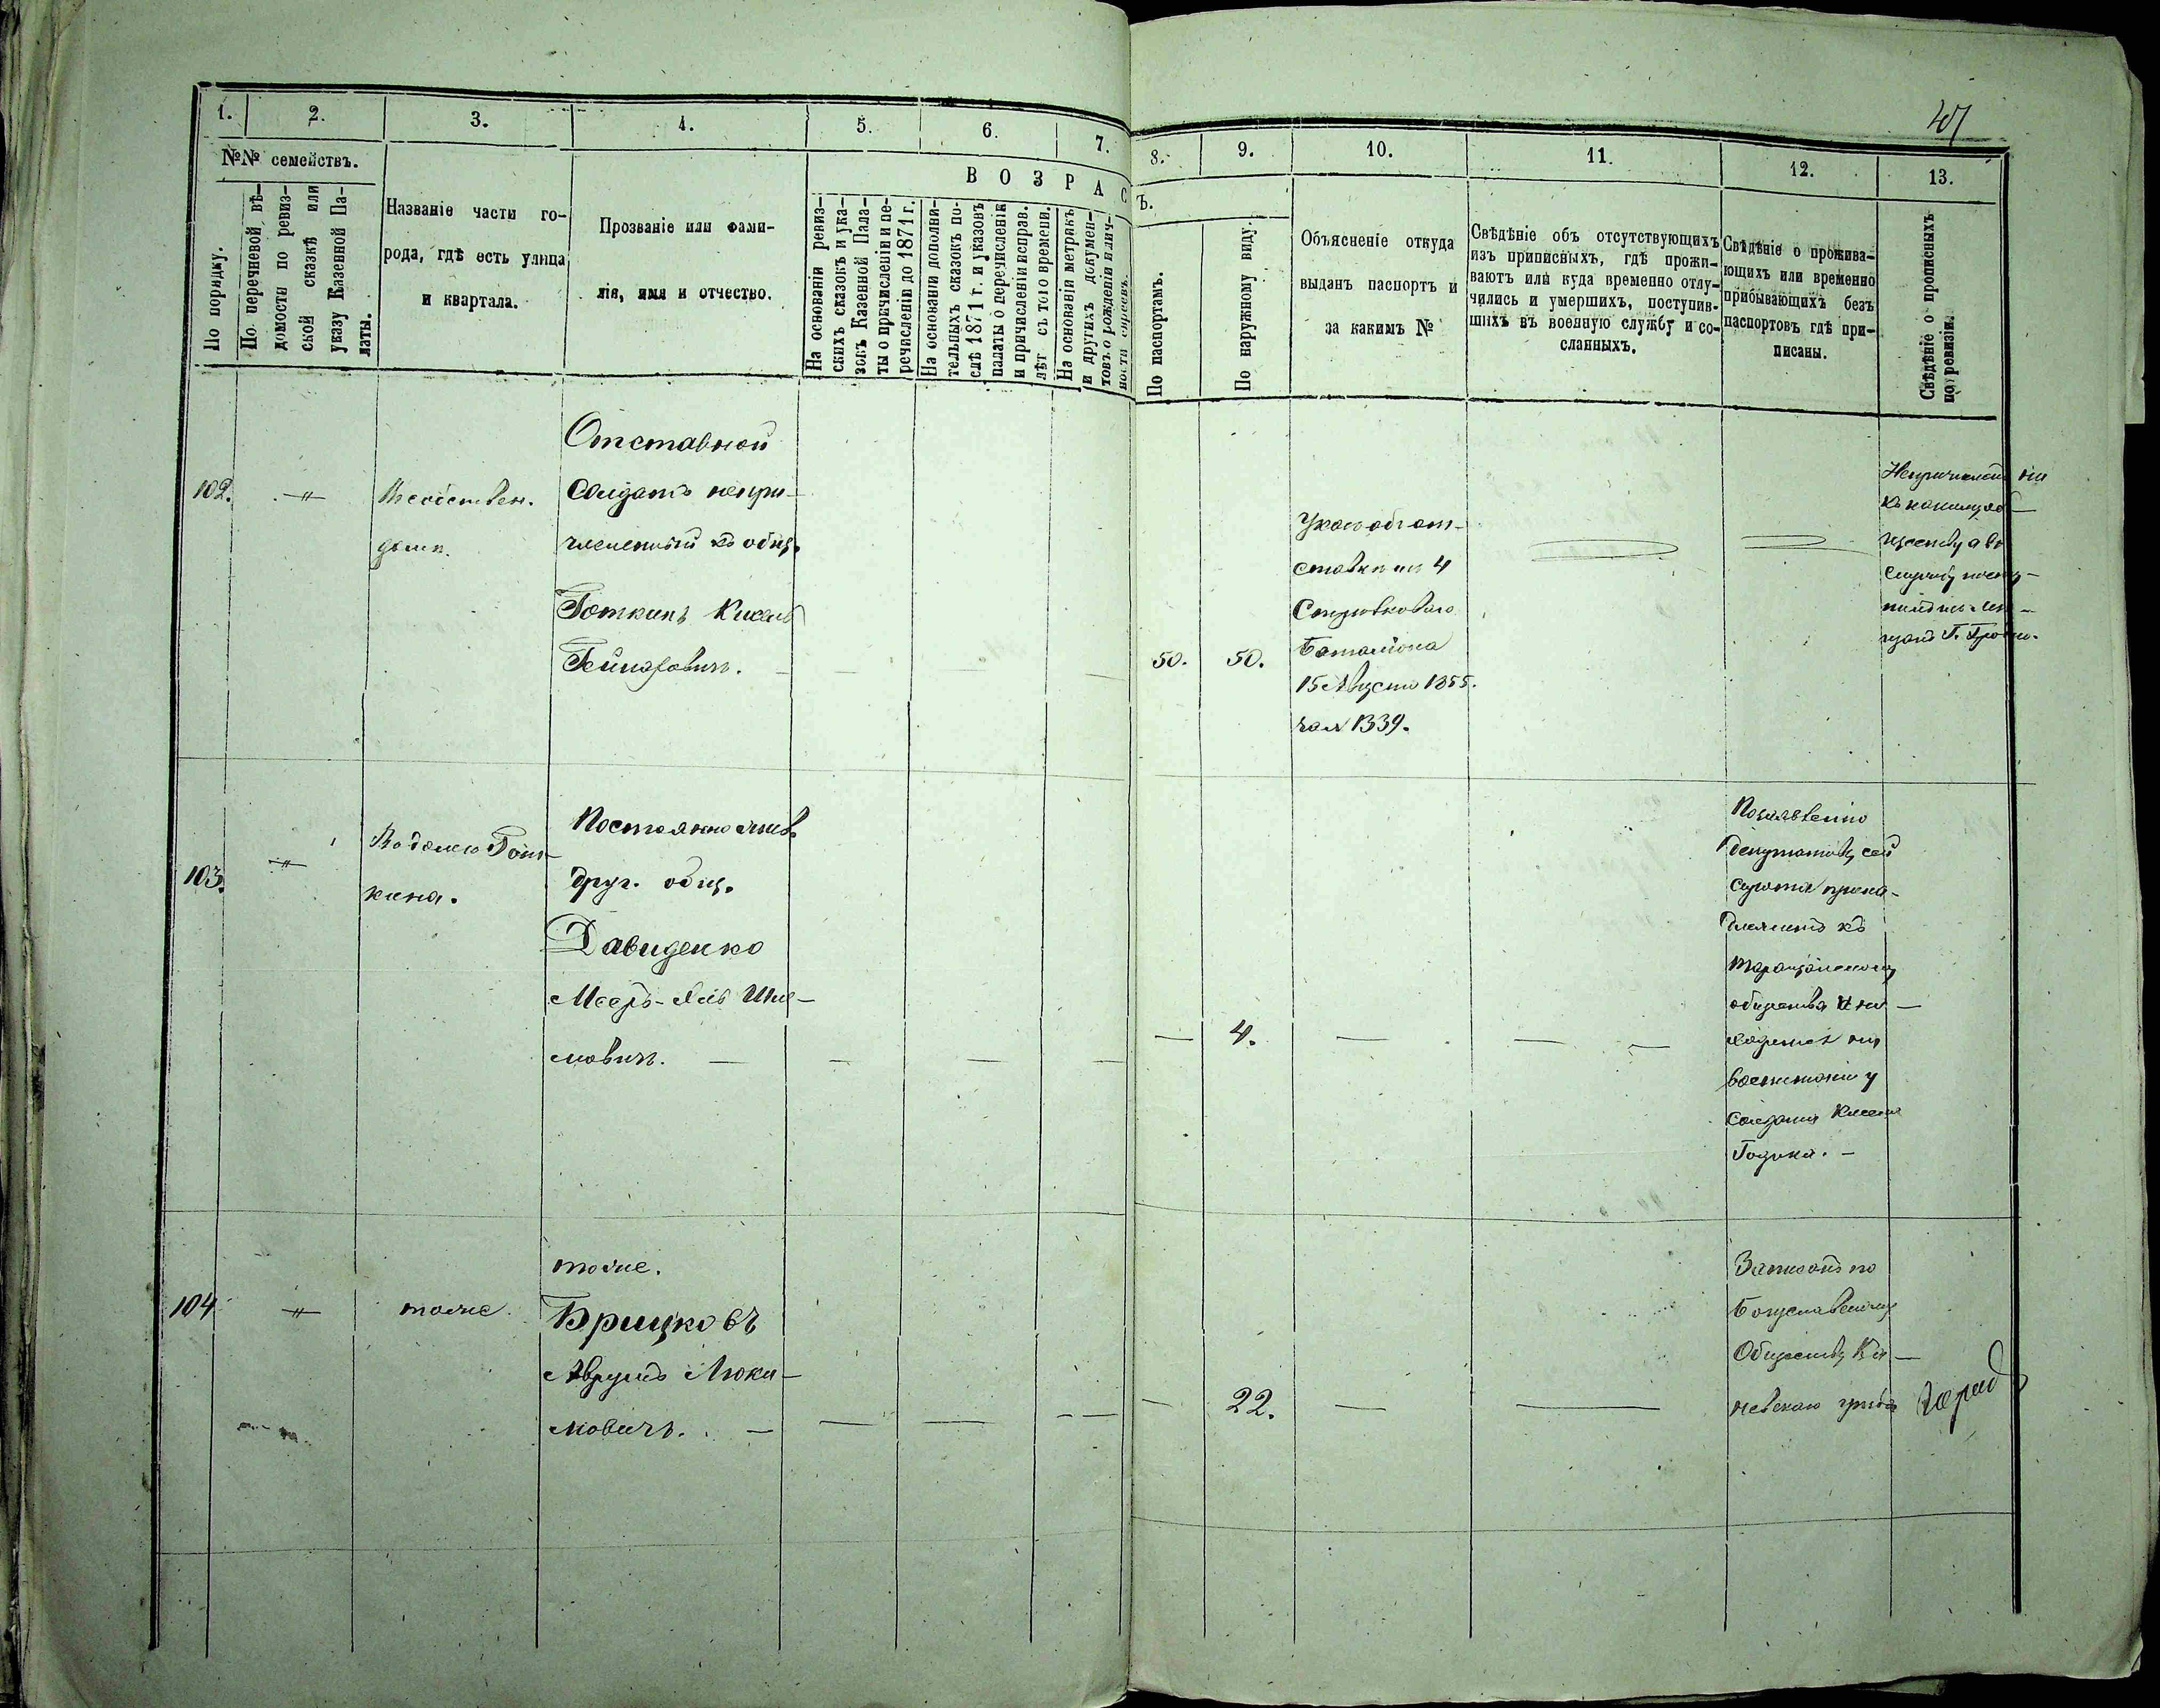 47
1. 2. 3. 4. 5. 6. 7. 8. 9. 10. 11. 12. 13.
№№ семействъ.
По порядку.
По перечневой вѣ-
домости по ревиз-
ской сказкѣ или
указу Казенной Па-
латы.
Названіе части го-
рода, гдѣ есть улица
и квартала.
Прозваніе или фами-
лія, имя и отчество.
ВОЗРАСТЪ.
На основаніи ревиз-
скихъ сказокъ и ука-
зокъ Казенной Пала-
ты о причисленіи и пе-
речисленіи до 1871 г.
На основаніи дополни-
тельныхъ сказокъ по-
слѣ 1871 г. и указовъ
палаты о перечисленіи
и причисленіи исправ.
лѣт съ того времени.
На основаніи метрикъ
и другихъ докумен-
товъ о рожденіи и лич-
ности
По паспортамъ.
По наружному виду.
Объясненіе откуда
выданъ паспортъ и
за какимъ №
Свѣдѣніе объ отсутствующихъ
изъ приписныхъ, гдѣ прожи-
ваютъ или куда временно отлу-
чились и умершихъ, поступив-
шихъ въ военную службу и со-
сланныхъ.
Свѣдѣніе о прожива-
ющихъ или временно
прибывающихъ безъ
паспортовъ гдѣ при-
писаны.
Свѣдѣніе о прописныхъ
по ревизіи.
102.
Въ собствен.
домѣ.
Отставной
Солдатъ непри-
численный къ общ.
Готкинъ Кисель
50. 50.
Указъ объ от-
ставкѣ изъ 4
Стрѣлковаго
Баталіона
15 Августа 1855.
за № 1339.
Непричисленъ ни
къ какому об-
ществу а въ
службу посту-
103.
Въ домѣ Гот-
кина.
Постоянно жив.
друг. общ.
Давиденко
мовичъ.
4.
По заявленію
депутатовъ сей
сирота прина-
длежитъ къ
Таращанскому
общества и на-
ходится на
воспитаніи у
солдата Киселя
104
тоже.
тоже.
Брицковъ
Аврумъ
мовичъ.
22.
Записанъ по
Богуславскому
Обществу Ка-
невскаго уѣзда